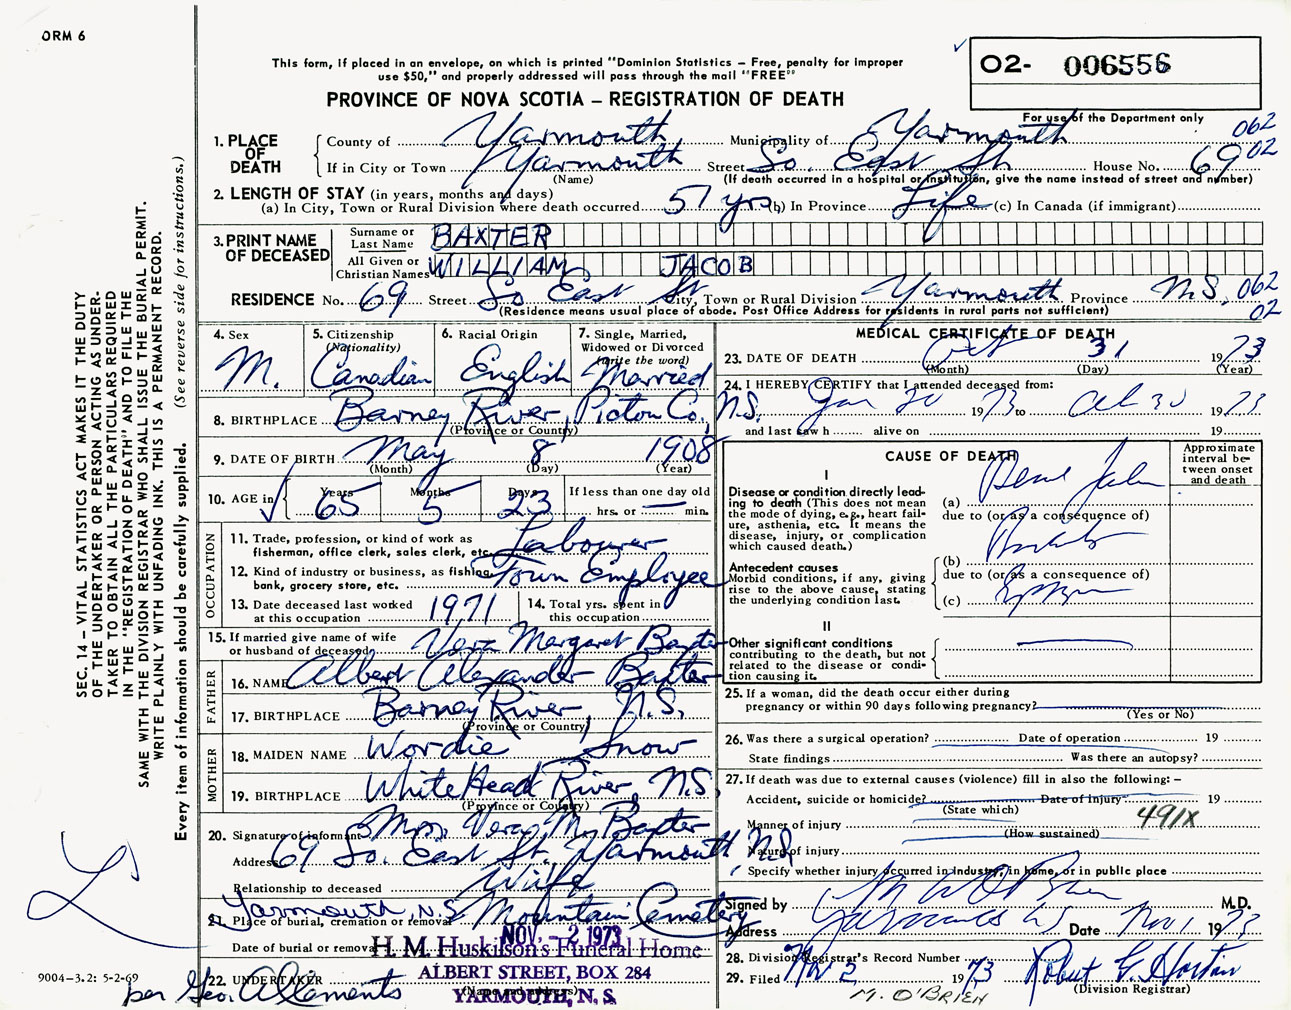 ORM 6
This form, if placed in an envelope, on which is printed "Dominion Statistics – Free, penalty for improper
use $50," and properly addressed will pass through the mail "FREE"
PROVINCE OF NOVA SCOTIA – REGISTRATION OF DEATH
02- 006556
For use of the Department only
062
02
SEC. 14 – VITAL STATISTICS ACT MAKES IT THE DUTY
OF THE UNDERTAKER OR PERSON ACTING AS UNDER-
TAKER TO OBTAIN ALL THE PARTICULARS REQUIRED
IN THE "REGISTRATION OF DEATH" AND TO FILE THE
SAME WITH THE DIVISION REGISTRAR WHO SHALL ISSUE THE BURIAL PERMIT.
WRITE PLAINLY WITH UNFADING INK. THIS IS A PERMANENT RECORD.
Every item of information should be carefully supplied. (See reverse side for instructions.)
1. PLACE OF DEATH
County of Yarmouth Municipality of Yarmouth
If in City or Town Yarmouth Street So. East St. House No. 69
(Name) (If death occurred in a hospital or institution, give the name instead of street and number)
2. LENGTH OF STAY (in years, months and days)
(a) In City, Town or Rural Division where death occurred 57 yrs (b) In Province Life (c) In Canada (if immigrant)
3. PRINT NAME OF DECEASED
Surname or Last Name BAXTER
All Given or Christian Names WILLIAM JACOB
RESIDENCE No. 69 Street So East St City, Town or Rural Division Yarmouth Province N.S. 062
02
(Residence means usual place of abode. Post Office Address for residents in rural parts not sufficient)
4. Sex M.
5. Citizenship (Nationality) Canadian
6. Racial Origin English
7. Single, Married, Widowed or Divorced (write the word) Married
8. BIRTHPLACE Barney River, Pictou Co., N.S.
(Province or Country)
9. DATE OF BIRTH May 8 1908
(Month) (Day) (Year)
10. AGE in Years 65 Months 5 Days 23 If less than one day old
hrs. or min.
OCCUPATION
11. Trade, profession, or kind of work as
fisherman, office clerk, sales clerk, etc. Labourer
12. Kind of industry or business, as fishing,
bank, grocery store, etc. Town Employee
13. Date deceased last worked
at this occupation 1971
14. Total yrs. spent in
this occupation
15. If married give name of wife
or husband of deceased Vera Margaret Baxter
FATHER
16. NAME Albert Alexander Baxter
17. BIRTHPLACE Barney River, N.S.
(Province or Country)
MOTHER
18. MAIDEN NAME Wordie Snow
19. BIRTHPLACE White Head River, N.S.
(Province or Country)
20. Signature of informant Mrs. Vera M. Baxter
Address 69 So. East St. Yarmouth, N.S.
Relationship to deceased Wife
21. Place of burial, cremation or removal Yarmouth N.S. Mountain Cemetery
Date of burial or removal NOV. -2 1973
H. M. Huskilson's Funeral Home
ALBERT STREET, BOX 284
YARMOUTH, N. S.
22. UNDERTAKER
(Name and address)
per Geo.
9004-3.2: 5-2-69
MEDICAL CERTIFICATE OF DEATH
23. DATE OF DEATH Oct 31 1973
(Month) (Day) (Year)
24. I HEREBY CERTIFY that I attended deceased from:
Jan 20 1973 to Oct 30 1973
and last saw h alive on 19
CAUSE OF DEATH
Approximate
interval be-
tween onset
and death
I
Disease or condition directly lead-
ing to death (This does not
mean
the mode of dying, e.g., heart fail-
ure, asthenia, etc. It means the
disease, injury, or complication
which caused death.)
(a)
due to (or as a consequence of)
(b)
due to (or as a consequence of)
(c)
Antecedent causes
Morbid conditions, if any, giving
rise to the above cause, stating
the underlying condition last.
II
Other significant conditions
contributing to the death, but not
related to the disease or condi-
tion causing it.
25. If a woman, did the death occur either during
pregnancy or within 90 days following pregnancy?
(Yes or No)
26. Was there a surgical operation? Date of operation 19
State findings Was there an autopsy?
27. If death was due to external causes (violence) fill in also the following: –
Accident, suicide or homicide? Date of injury 19
(State which)
Manner of injury 491X
(How sustained)
Nature of injury
Specify whether injury occurred in industry, in home, or in public place
Signed by M W O'Brien M.D.
Address Yarmouth Date Nov 1 1973
28. Division Registrar's Record Number
29. Filed Nov 2 1973 Robert G. Horton
(Division Registrar)
M. O'BRIEN